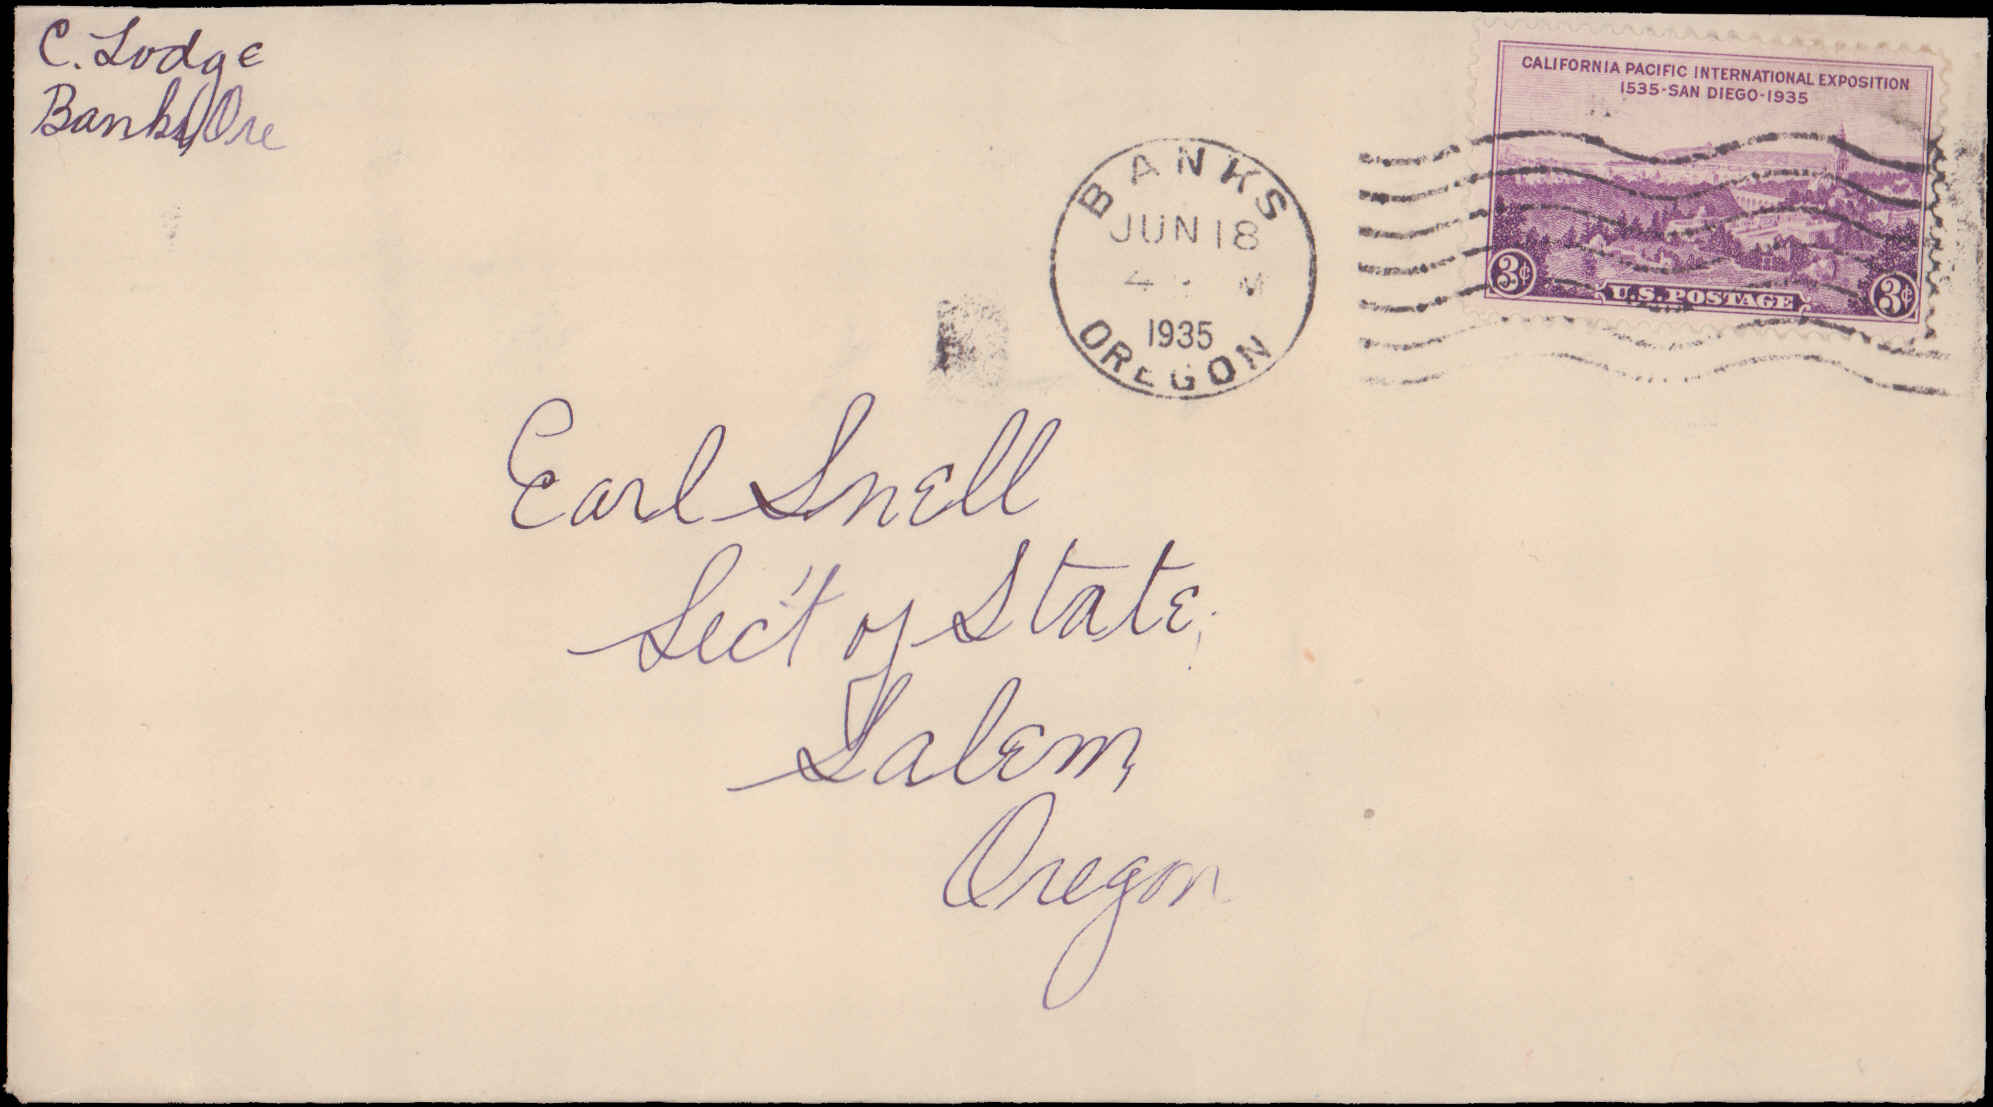 C. Lodge
Banks, Ore
CALIFORNIA PACIFIC INTERNATIONAL EXPOSITION
1535-SAN DIEGO-1935
3¢
U.S. POSTAGE
3¢
BANKS
JUN 18
4 M
1935
OREGON
Earl Snell
Sec't of State,
Salem,
Oregon